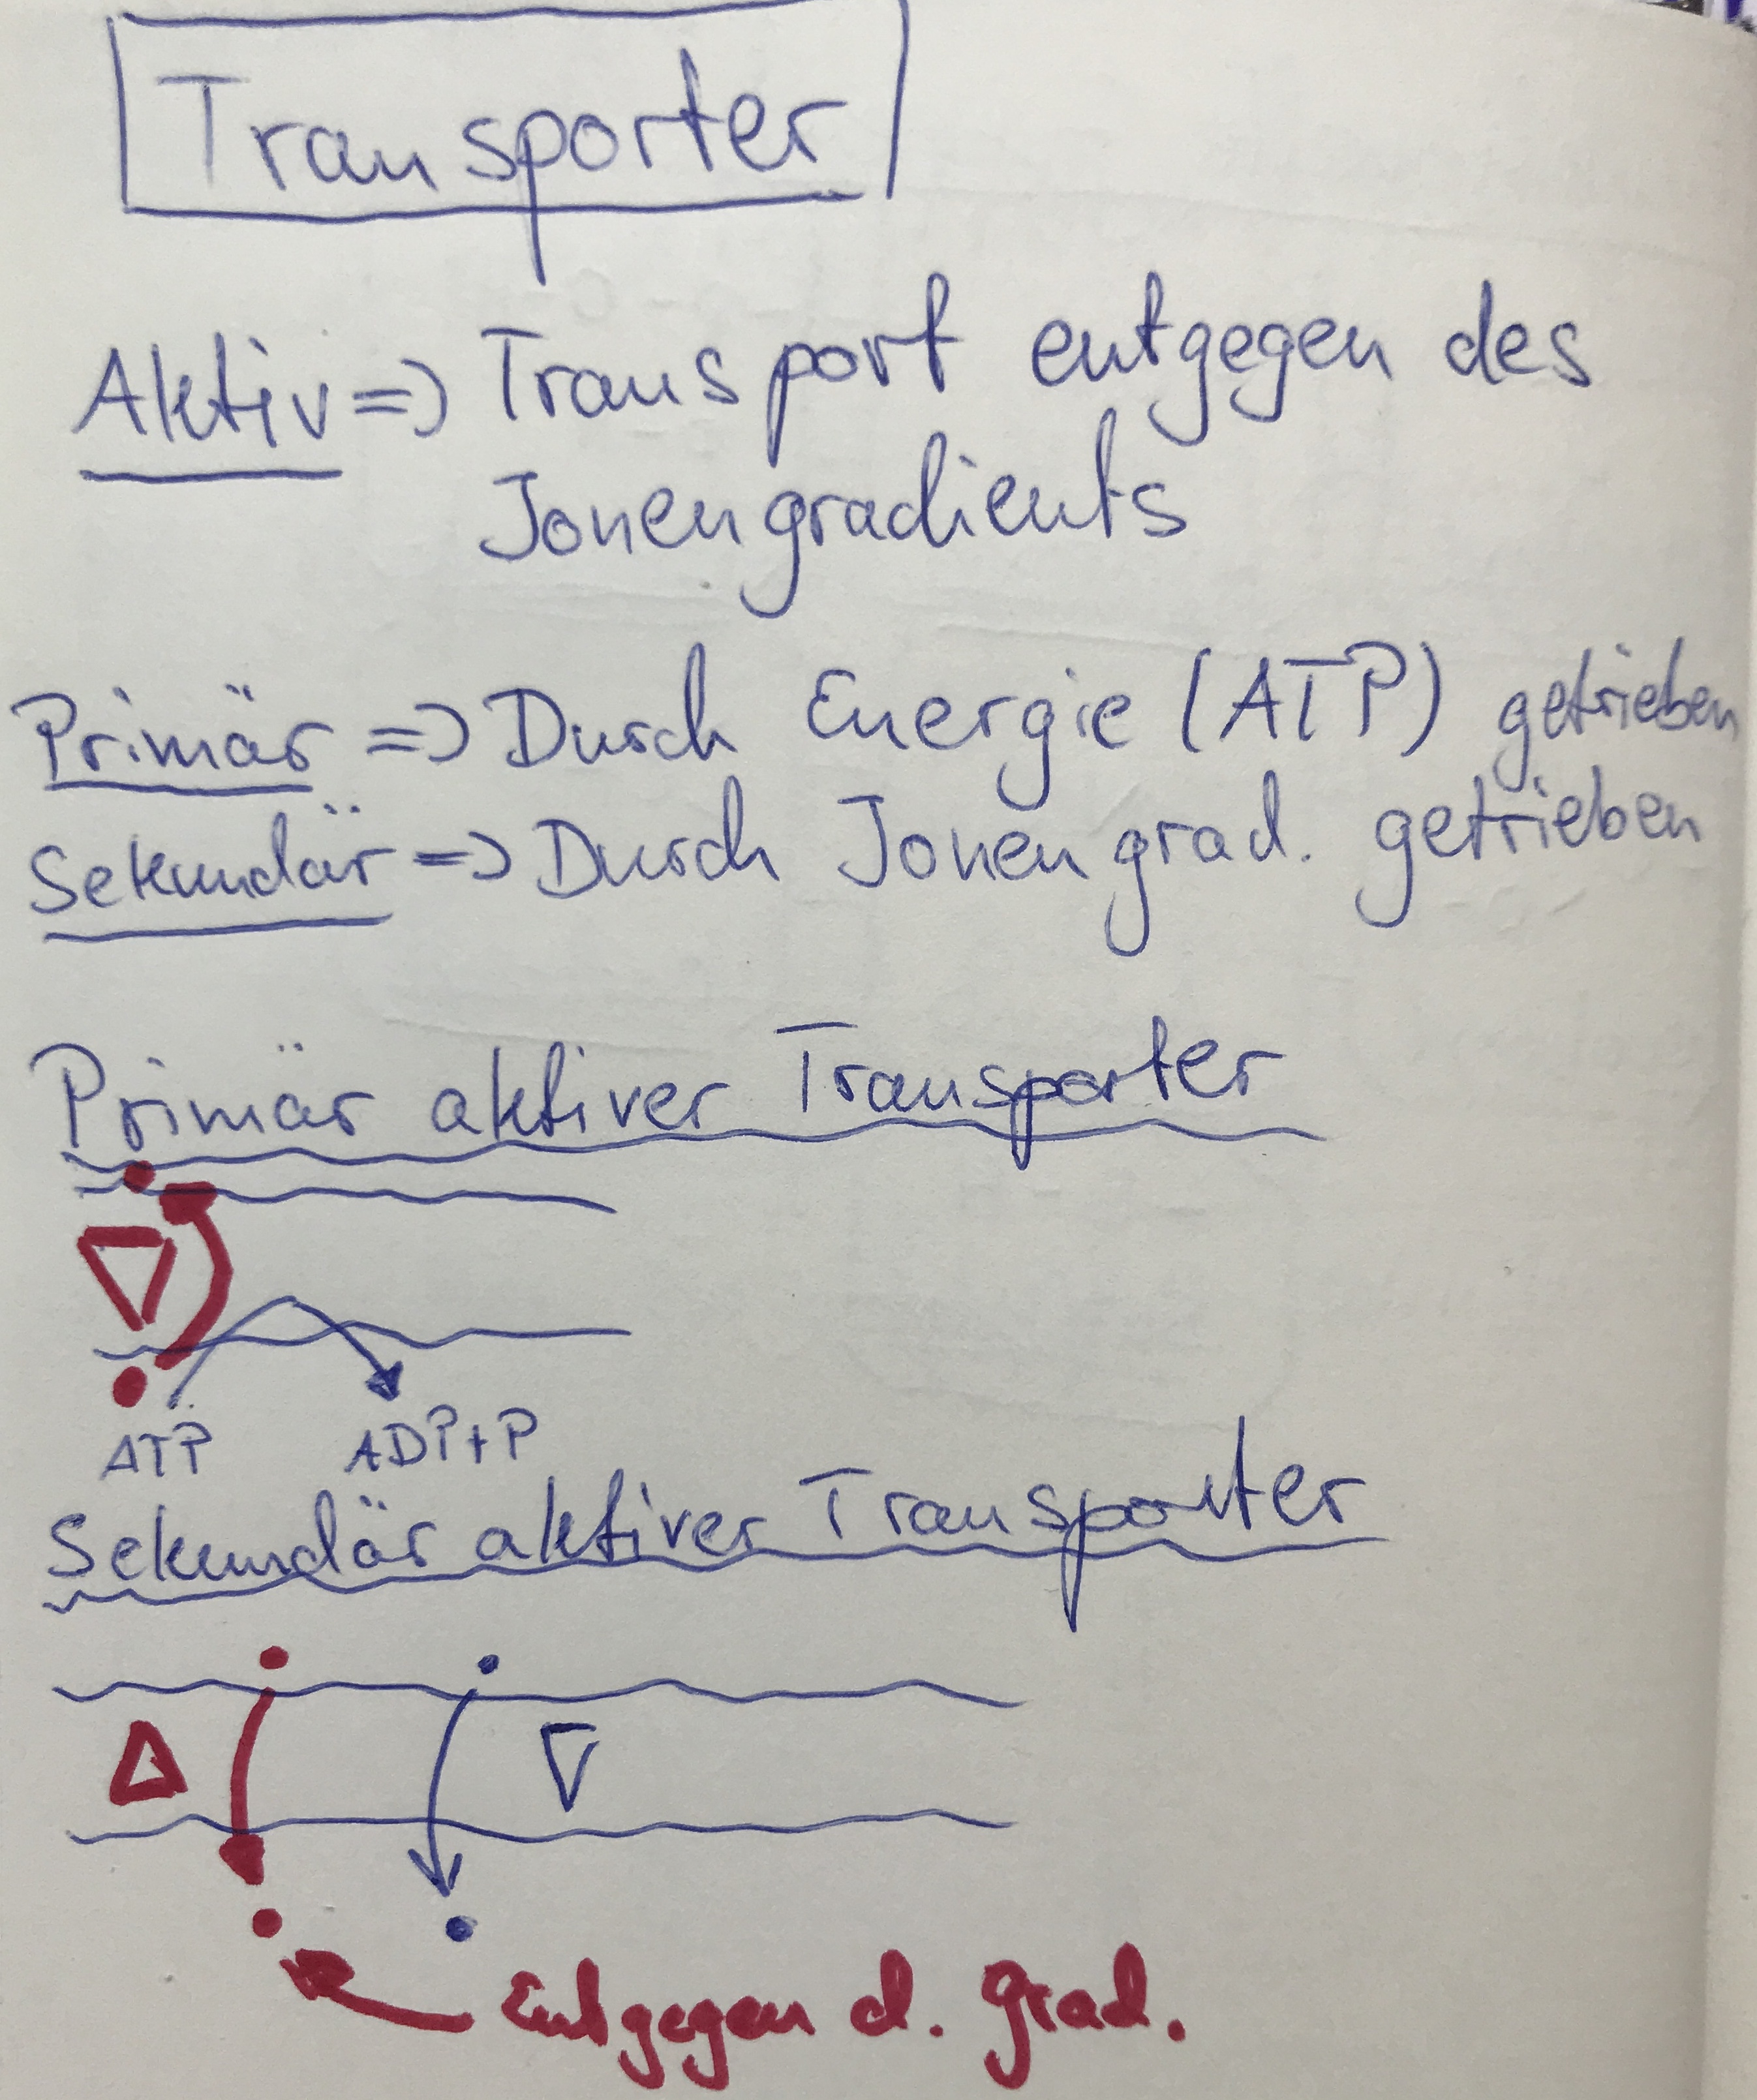 Transporter
Aktiv => Transport entgegen des
Jonengradients
Primär => Durch Energie (ATP) getrieben
Sekundär => Durch Jonengrad. getrieben
Primär aktiver Transporter
ATP ADP+P
Sekundär aktiver Transporter
Entgegen d. Grad.